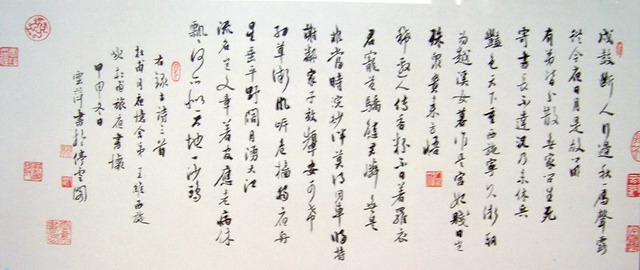 戍鼓斷人行邊秋一雁聲露
從今夜白月是故鄉明
有弟皆分散無家問生死
寄書長不達況乃未休兵
豔色天下重西施寧久微朝
為越溪女暮作吳宮妃賤日豈
殊眾貴來方悟
稀邀人傅香粉不自著羅衣
君寵益驕態君憐無是
非當時浣紗伴莫得同車歸持
謝鄰家子效顰安可希
細草微風岸危檣獨夜舟
星垂平野闊月湧大江
流名豈文章著官應老病休
飄飄何所似天地一沙鷗
右錄古詩三首
杜甫月夜憶舍弟 王維西施
詠 杜甫旅夜書懷
甲申冬日
雲萍書於停雲閣